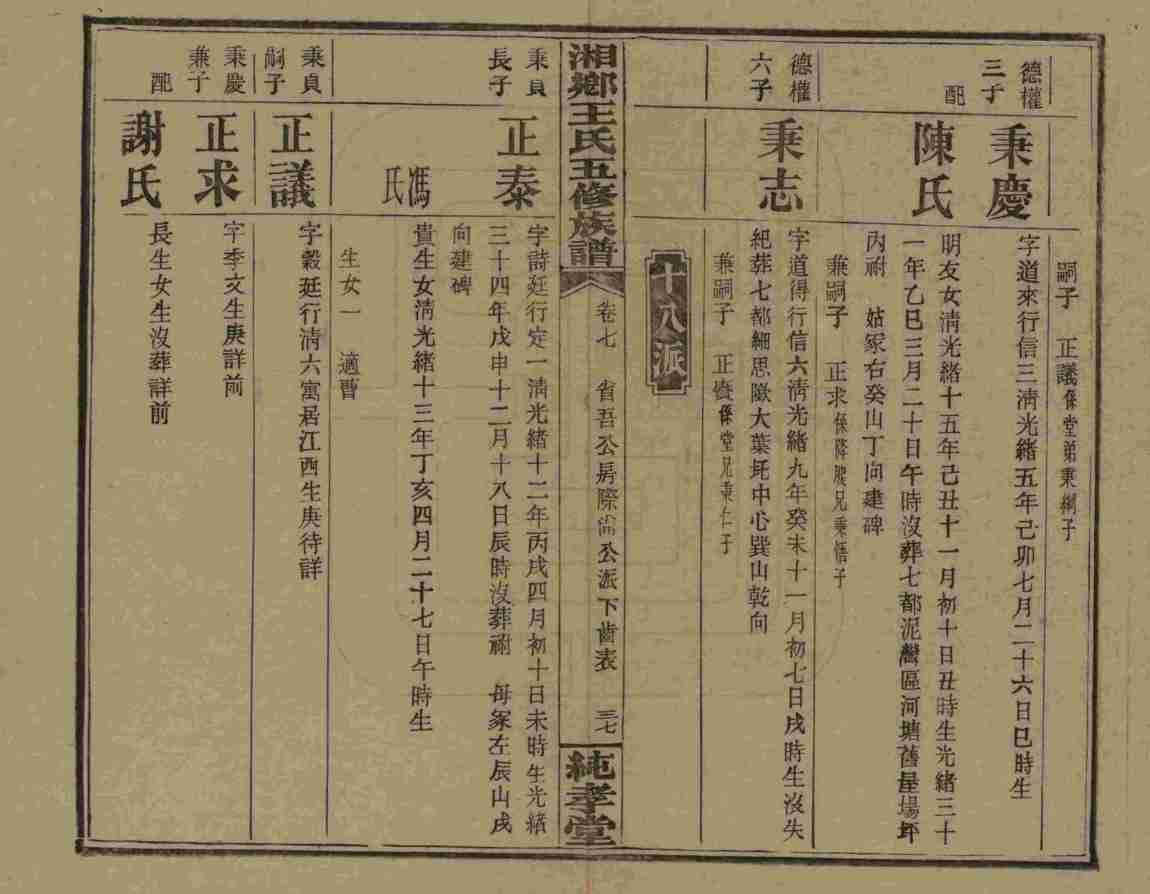 嗣子　正議係堂弟秉綱子
德權
三子
秉慶
字道來行信三淸光緒五年己卯七月二十六日巳時生
配
陳氏
明友女淸光緒十五年己丑十一月初十日丑時生光緒三十
一年乙巳三月二十日午時沒葬七都泥灣區河塘舊屋場坪
內祔　姑冢右癸山丁向建碑
兼嗣子　正求係降服兄秉悟子
德權
六子
秉志
字道得行信六淸光緒九年癸未十一月初七日戌時生沒失
紀葬七都細思歐大葉坵中心巽山乾向
兼嗣子　正賡係堂兄秉仁子
十八派
湘鄉王氏五修族譜
卷七　省吾公房際倫公派下齒表　三七
純孝堂
秉貞
長子
正泰
字詩廷行定一淸光緒十二年丙戌四月初十日未時生光緒
三十四年戊申十二月十八日辰時沒葬祔　母冢左辰山戌
向建碑
馮氏
貴生女淸光緒十三年丁亥四月二十七日午時生
生女一　適曹
秉貞
嗣子
正議
字毅廷行淸六寓居江西生庚待詳
秉慶
兼子
正求
字季文生庚詳前
配
謝氏
長生女生沒葬詳前